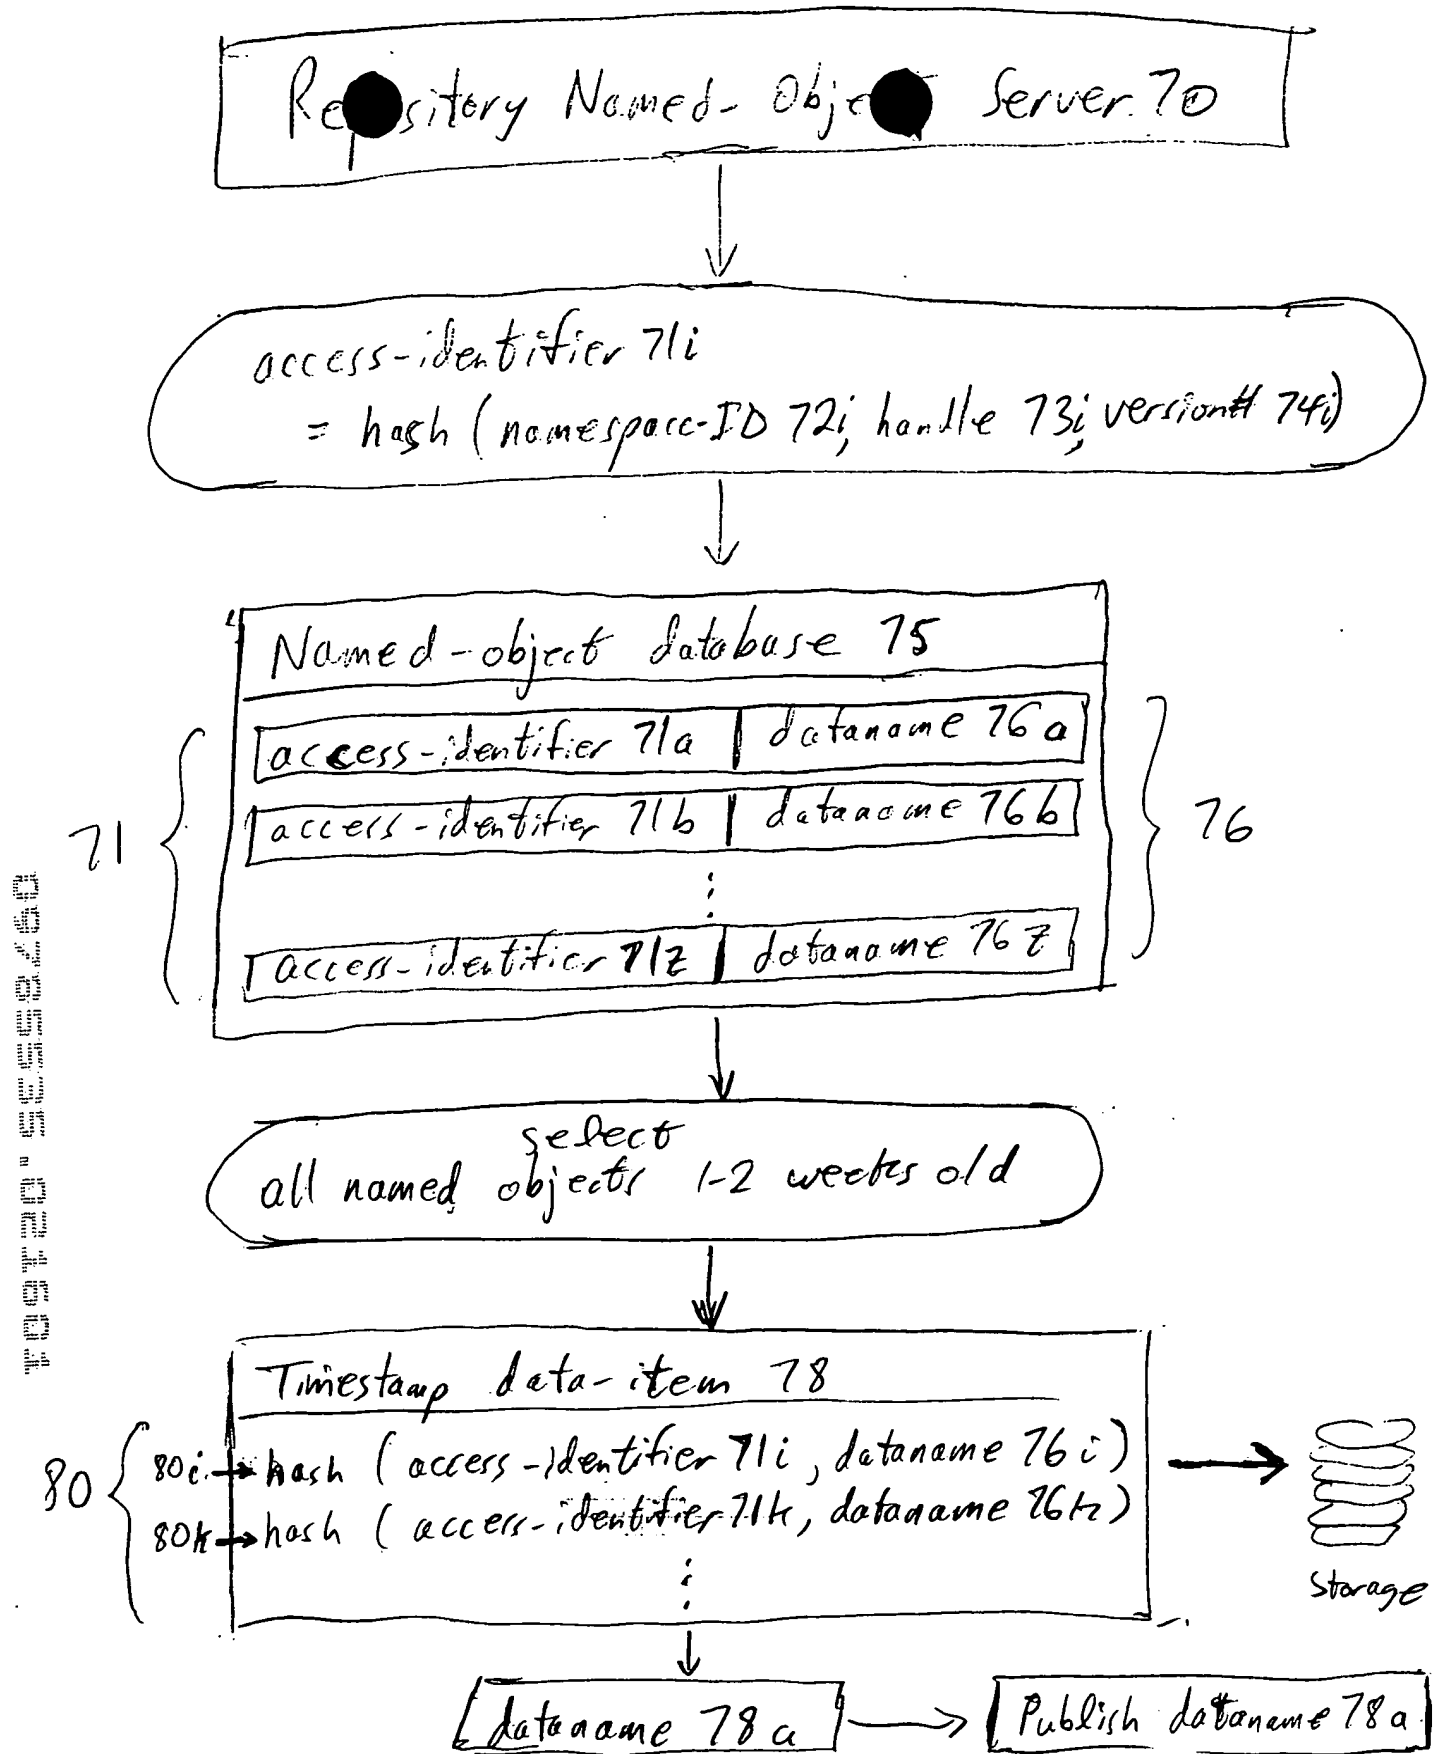 Repository Named-Object Server 70
access-identifier 71i
= hash (namespace-ID 72i, handle 73i, version# 74i)
Named-object database 75
access-identifier 71a | dataname 76a
access-identifier 71b | dataname 76b
71
76
access-identifier 71z | dataname 76z
select
all named objects 1-2 weeks old
Timestamp data-item 78
80
80i → hash (access-identifier 71i, dataname 76i)
80k → hash (access-identifier 71k, dataname 76k)
Storage
dataname 78a
Publish dataname 78a
09785535.021601